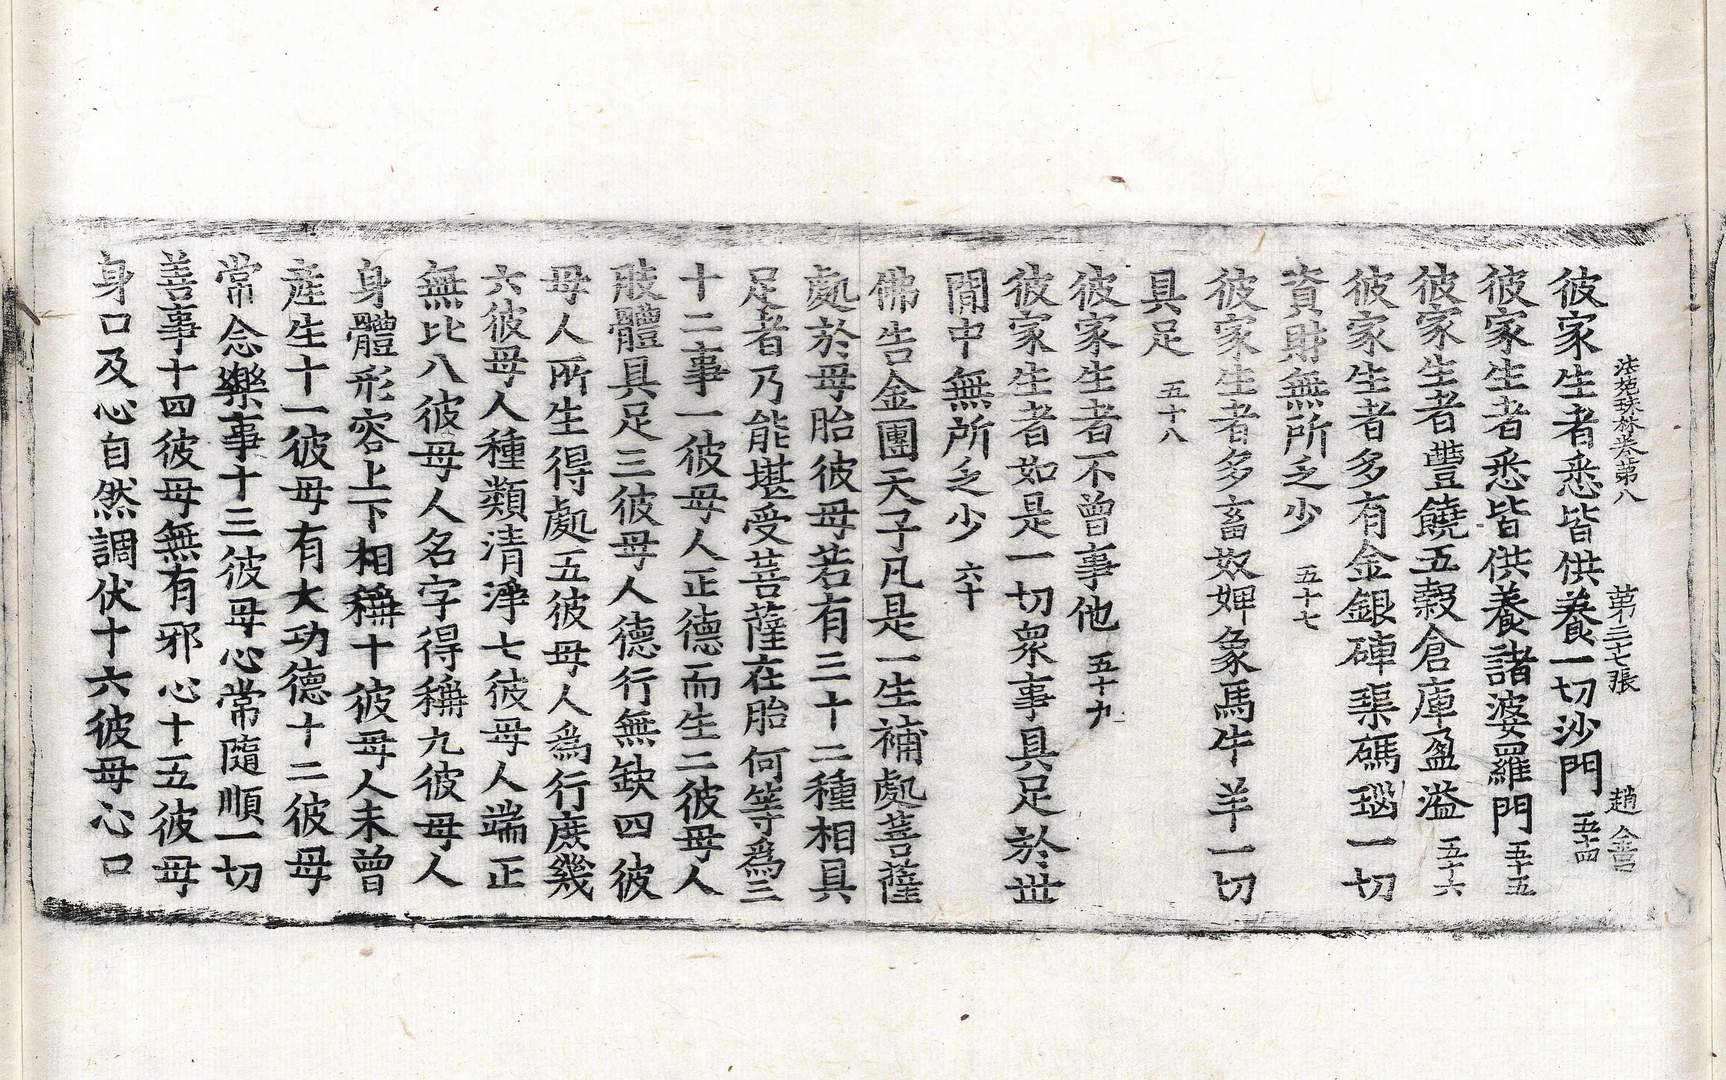 法苑珠林卷第八 第三十七張 趙
彼家生者悉皆供養一切沙門 五十四
彼家生者悉皆供養諸婆羅門 五十五
彼家生者豐饒五穀倉庫盈溢 五十六
彼家生者多有金銀硨磲碼瑙一切
資財無所乏少 五十七
彼家生者多畜奴婢象馬牛羊一切
具足 五十八
彼家生者不曾事他 五十九
彼家生者如是一切衆事具足於世
間中無所乏少 六十
佛告金團天子凡是一生補處菩薩
處於母胎彼母若有三十二種相具
足者乃能堪受菩薩在胎何等爲三
十二事一彼母人正德而生二彼母人
肢體具足三彼母人德行無缺四彼
母人所生得處五彼母人爲行庶幾
六彼母人種類清淨七彼母人端正
無比八彼母人名字得稱九彼母人
身體形容上下相稱十彼母人未曾
產生十一彼母有大功德十二彼母
常念樂事十三彼母心常隨順一切
善事十四彼母無有邪心十五彼母
身口及心自然調伏十六彼母心口